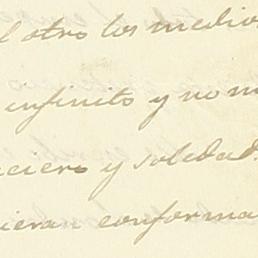 el otro los medios
infinito y no m
aciero y soledad.
iera conforma